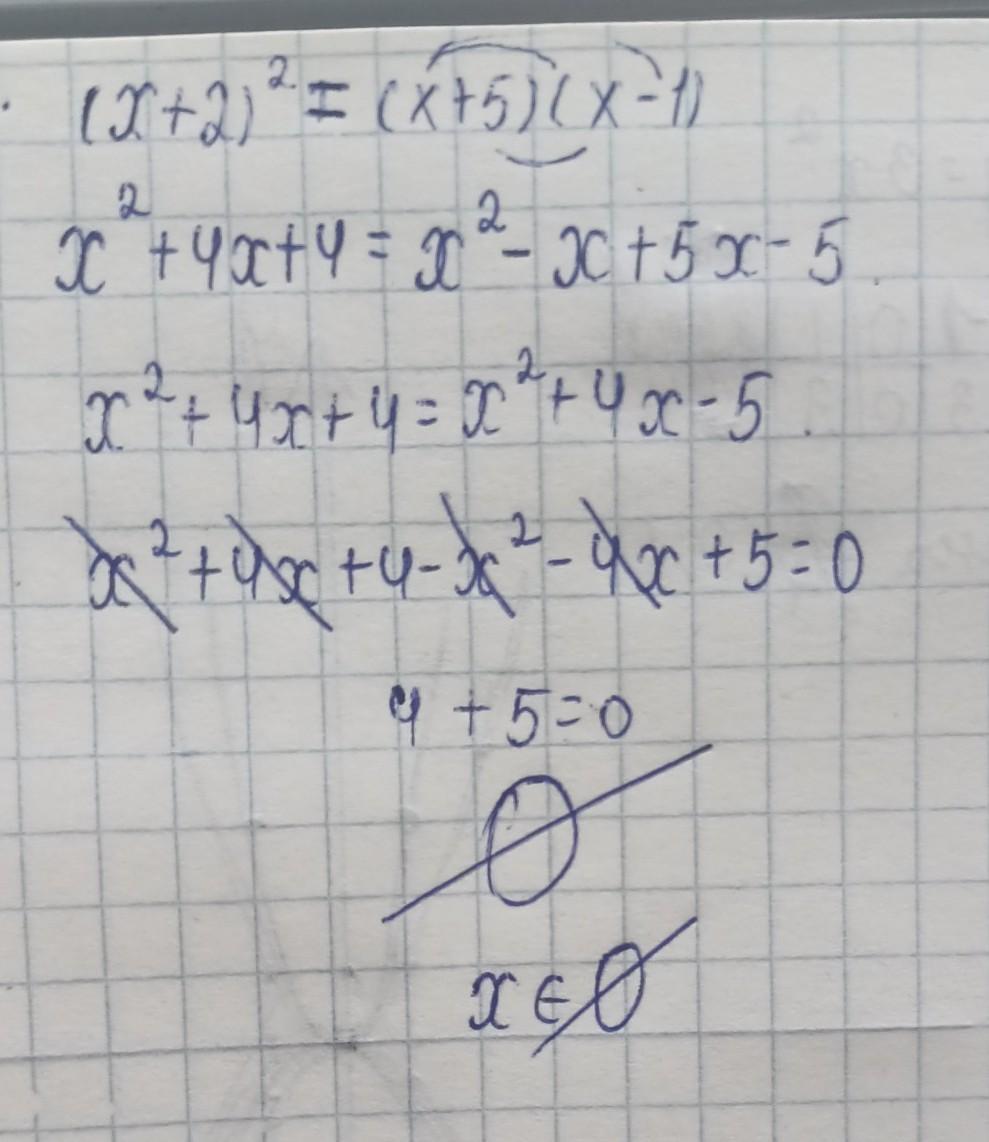 (x+2)² = (x+5)(x-1)
x² + 4x + 4 = x² - x + 5x - 5
x² + 4x + 4 = x² + 4x - 5
x² + 4x + 4 - x² - 4x + 5 = 0
4 + 5 = 0
∅
x ∈ ∅